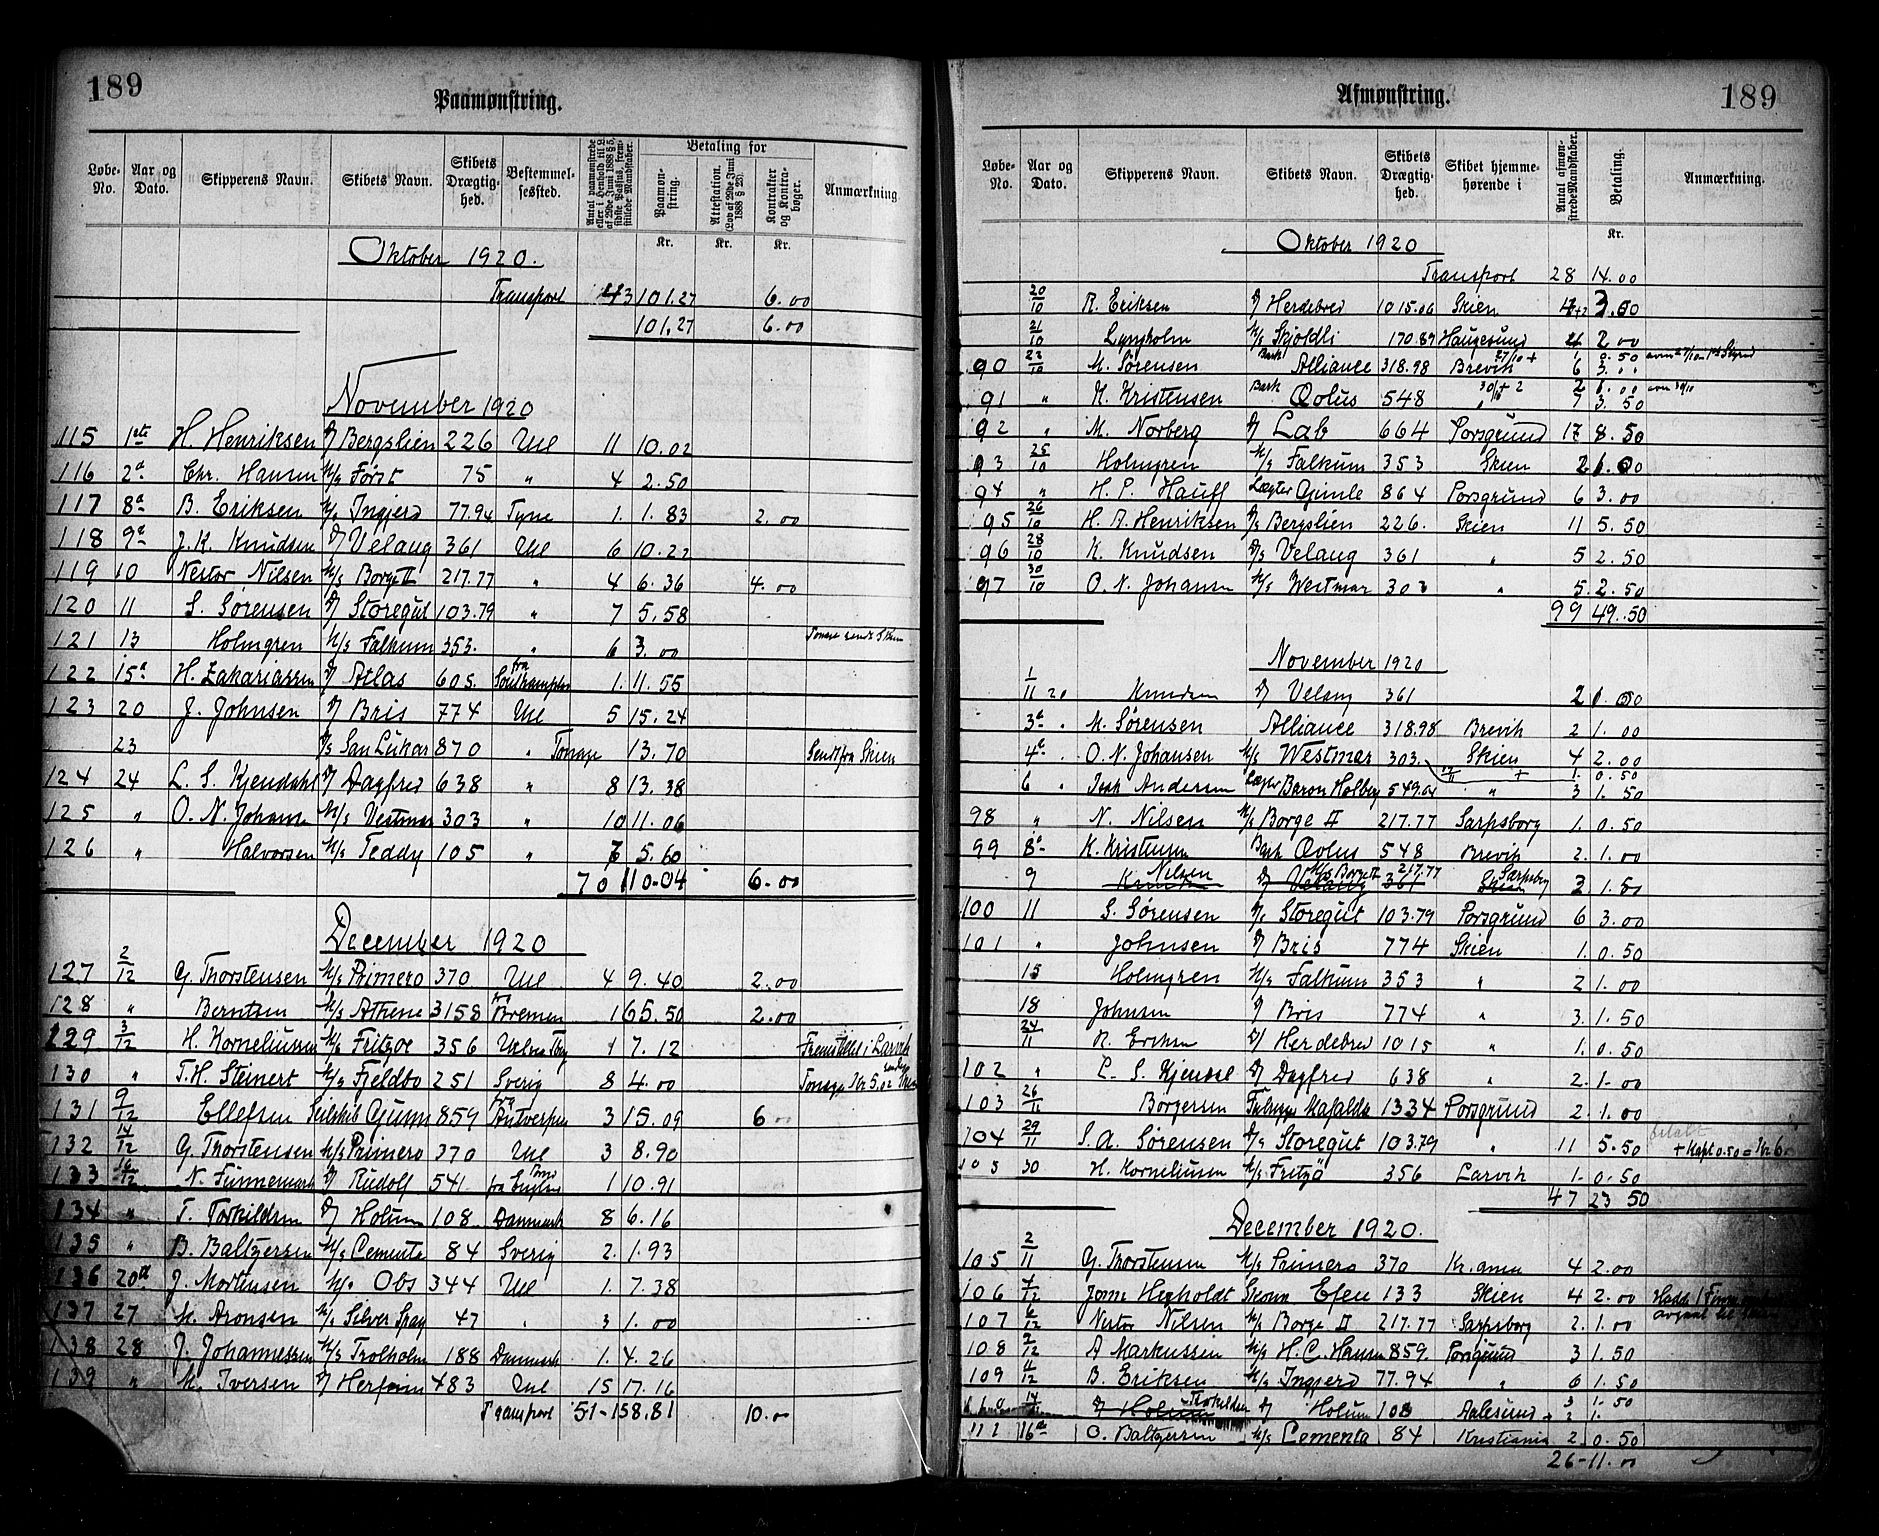 189
Paamønstring.
Løbe-No. Aar og Dato. Skipperens Navn. Skibets Navn. Skibets Drægtighed. Bestemmelsessted. Antal paamønstrede eller i Henhold til L. af 29de Juni 1888 § 5, sidste Passus, fremstillede Mandskaber. Betaling for Paamønstring. Attestation. (Lov af 29de Juni 1888 § 23). Kontrakter og Kontrabøger. Anmærkning.
Kr. Kr. Kr.
Oktober 1920.
Transport 43 101.27 6.00
101.27 6.00
November 1920
115 1ste H. Henriksen D/ Bergslien 226 Ul 11 10.02
116 2d Chr. Hansen M/s Først 75 " 4 2.50
117 8d B. Eriksen M/s Ingjerd 77.94 Tyne 1. 1.83 2.00
118 9d J. K. Knudsen D/ Velaug 361 Ul 6 10.22
119 10 Nestor Nilsen M/s Borge II 217.77 " 4 6.36 4.00
120 11 S. Sørensen D/ Storegut 103.79 " 7 5.58
121 13 Holmgren M/s Falkum 353. " 6 3.00 Tonage sendt Skien
122 15d H. Zakariassen D/ Atlas 605. fra Southampton 1. 11.55
123 20 J. Johnsen D/ Bris 774 Ul 5 15.24
23 D/s San Lukar 870 " Tonage 13.70 Sendt fra Skien
124 24 L. S. Kjendahl D/ Dagfred 638 " 8 13.38
125 " O. N. Johansen M/s Vestmar 303 " 10 11.06
126 " Halvorsen M/s Teddy 105 " 7 5.60
70 110.04 6.00
December 1920
127 2/12 G. Thorstensen M/s Primero 370 Ul 4 9.40 2.00
128 " Berntsen M/s Athene 3158 fra Bremen 1 65.50 2.00
129 3/12 H. Korneliussen M/s Fritzoe 356 1 7.12 Fremstillet i Larvik
130 " T. H. Steinert M/s Fjeldbo 251 Sverig 8 4.00 Tonage Kr 5.02 sendt
131 9/12 Ellefsen Seilskib Gunn 859 fra Antwerpen 3 15.09 6
132 14/12 G. Thorstensen M/s Primero 370 Ul 3 8.90
133 16/12 N. Funnemark D/ Rudolf 541 fra England 1 10.91
134 " T. Torkildsen D/ Holum 108 Danmark 8 6.16
135 " B. Baltzersen M/s Cementa 84 Sverig 2. 1.93
136 20de J. Mortensen M/s Obs 344 Ul 1. 7.38
137 27 M. Aronsen M/s Silver Spray 47 " 3 1.00
138 28 J. Johannessen M/s Trolholm 188 Danmark 1. 4.26
139 " M. Iversen D/ Herfinn 483 Ul 15 17.16
Transport 51 - 158.81 10.00
Afmønstring.
189
Løbe-No. Aar og Dato. Skipperens Navn. Skibets Navn. Skibets Drægtighed. Skibet hjemmehørende i Antal afmønstrede Mandskaber. Betaling. Anmærkning.
Kr.
Oktober 1920
Transport 28 14.00
20/10 R. Eriksen D/ Herdebred 1015.06 Skien 4+2 3.00
21/10 Lyngholm M/s Skjoldli 170.87 Haugesund 4 2.00
90 23/10 M. Sørensen Bark Alliance 318.98 Brevik 27/10 + 1 0.50 6 3.00
91 " K. Kristensen Bark Æolus 548 " 30/10 + 2 2 1.00 7 3.50
92 " M. Norberg D/ Lab 664 Porsgrund 17 8.50
93 25/10 Holmgren M/s Falkum 353 Skien 2 1.00
94 " H. P. Hauff Lægter Gimle 864 Porsgrund 6 3.00
95 26/10 H. A. Henriksen D/s Bergslien 226. Skien 11 5.50
96 28/10 K. Knudsen D/s Velaug 361 " 5 2.50
97 30/10 O. N. Johansen M/s Westmar 303 " 5 2.50
99 49.50
November 1920
1/11 20 Knudsen D/ Velaug 361 2 1.00
3d " M. Sørensen Alliance 318.98 Brevik 2 1.00
4d " O. N. Johansen M/s Westmar 303. Skien 4 2.00
+ 1. 0.50
6 " Andersen Lægter Baron Holberg 549.04 " 3 1.50
98 " N. Nilsen M/s Borge II 217.77 Sarpsborg 1. 0.50
99 8d K. Kristensen Bark Æolus 548 Brevik 2. 1.00
9 Knudsen Nilsen D/ Velaug M/s Borge II 361 217.77 Skien Sarpsborg 3 1.50
100 11 S. Sørensen D/s Storegut 103.79 Porsgrund 6 3.00
101 " Johnsen D/ Bris 774 Skien 1. 0.50
15 Holmgren M/s Falkum 353 " 2 1.00
18 Johnsen D/ Bris 774 " 3. 1.50
24/11 R. Eriksen D/ Herdebred 1015 " 1. 0.50
102 " L. S. Kjendal D/ Dagfred 638 " 2. 1.00
103 26/11 Borgersen Mafalda 1334 Porsgrund 2. 1.00
104 29/11 S. A. Sørensen D/s Storegut 103.79 " 11 5.50 betalt + Kapt 0.50 = Kr 6.
105 30 H. Korneliussen M/s Fritzö 356 Larvik 1. 0.50
47 23 50
December 1920.
105 2/11 G. Thorstensen M/s Primero 370 Kr.ania 4 2.00
106 4/12 Hegholdt Skonn Efeu 133 Skien 4 2.00
107 6/12 Nestor Nilsen M/s Borge II 217.77 Sarpsborg 2. 1.00
108 2/12 A Markussen M/s H. C. Hansen 859. Porsgrund 3 1.50
109 11/12 B. Eriksen M/s Ingjerd 77.94 " 6 1.50
14/12 D/ Holum Torkildsen D/ Holum 108 Aalesund 3 1.50 + 2 1.
112 16de O. Baltzersen M/s Cementa 84 Kristiania 2 0.50
26 - 11.00